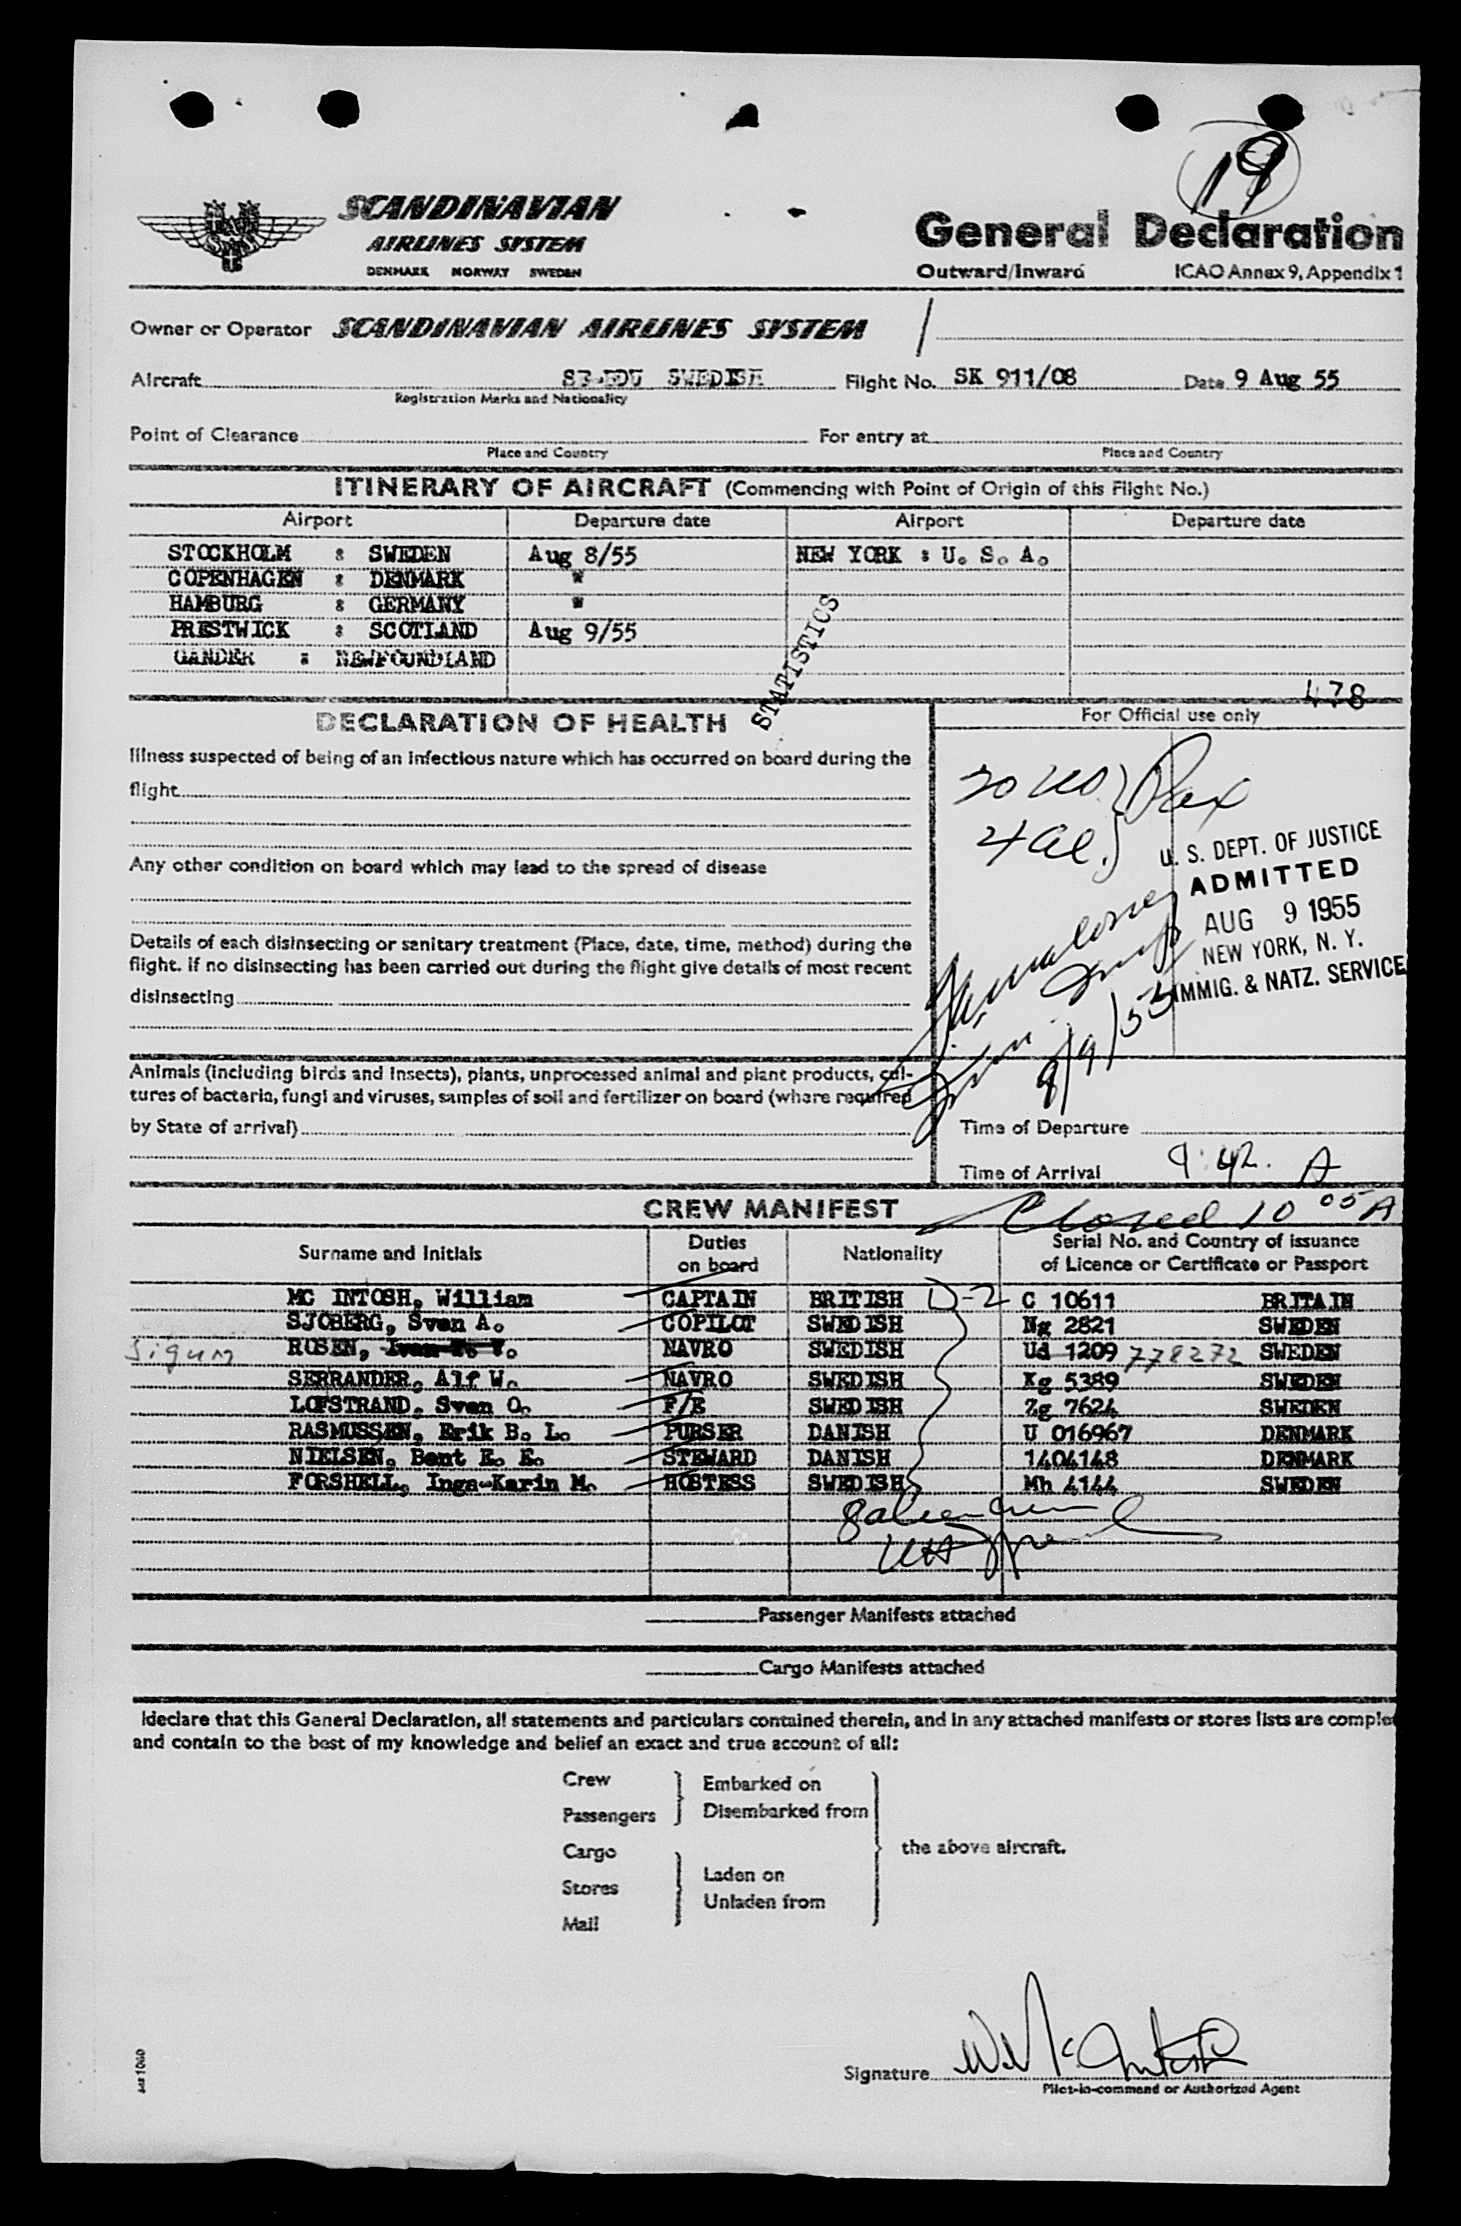 19
SCANDINAVIAN
AIRLINES SYSTEM
DENMARK NORWAY SWEDEN
General Declaration
Outward/Inward ICAO Annex 9, Appendix 1
Owner or Operator SCANDINAVIAN AIRLINES SYSTEM
Aircraft SWEDISH Flight No. SK 911/08 Date 9 Aug 55
Registration Marks and Nationality
Point of Clearance For entry at
Place and Country Place and Country
ITINERARY OF AIRCRAFT (Commencing with Point of Origin of this Flight No.)
Airport Departure date Airport Departure date
STOCKHOLM : SWEDEN Aug 8/55 NEW YORK : U. S. A.
COPENHAGEN : DENMARK "
HAMBURG : GERMANY "
PRESTWICK : SCOTLAND Aug 9/55
GANDER : NEWFOUNDLAND
STATISTICS
478
DECLARATION OF HEALTH
For Official use only
Illness suspected of being of an infectious nature which has occurred on board during the
flight
Any other condition on board which may lead to the spread of disease
Details of each disinsecting or sanitary treatment (Place, date, time, method) during the
flight. If no disinsecting has been carried out during the flight give details of most recent
disinsecting
Animals (including birds and insects), plants, unprocessed animal and plant products, cul-
tures of bacteria, fungi and viruses, samples of soil and fertilizer on board (where required
by State of arrival)
Pax
4 al.
U. S. DEPT. OF JUSTICE
ADMITTED
AUG 9 1955
NEW YORK, N. Y.
IMMIG. & NATZ. SERVICE
8/9/55
Time of Departure
Time of Arrival 9:42. A
CREW MANIFEST
Closed 10 05 A
Surname and Initials Duties on board Nationality Serial No. and Country of issuance of Licence or Certificate or Passport
MC INTOSH, William CAPTAIN BRITISH D-2 C 10611 BRITAIN
SJOBERG, Sven A. COPILOT SWEDISH Ng 2821 SWEDEN
Sigurn ROSEN, NAVRO SWEDISH Ud 1209 778272 SWEDEN
SERRANDER, Alf W. NAVRO SWEDISH Kg 5389 SWEDEN
LOFSTRAND, Sven O. F/E SWEDISH Zg 7624 SWEDEN
RASMUSSEN, Erik B. L. PURSER DANISH U 016967 DENMARK
NIELSEN, Bent E. E. STEWARD DANISH 1404148 DENMARK
FORSHELL, Inga-Karin M. HOSTESS SWEDISH Mh 4144 SWEDEN
Passenger Manifests attached
Cargo Manifests attached
I declare that this General Declaration, all statements and particulars contained therein, and in any attached manifests or stores lists are comple
and contain to the best of my knowledge and belief an exact and true account of all:
Crew Embarked on
Passengers Disembarked from
the above aircraft.
Cargo
Laden on
Stores
Unladen from
Mail
Signature W McIntosh
Pilot-in-command or Authorized Agent